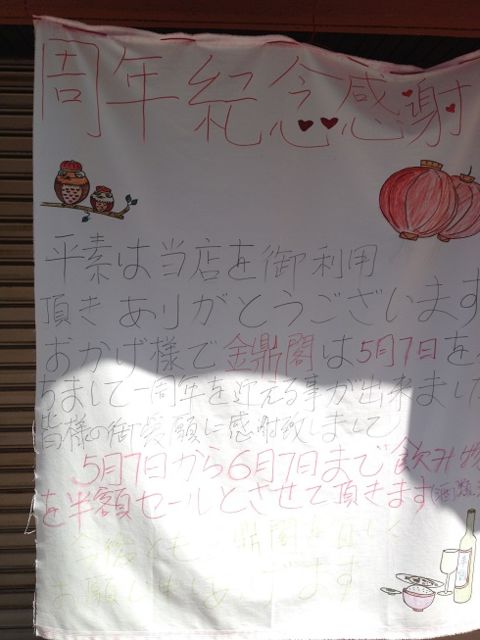 周年紀念感謝
平素は当店を御利用
頂きありがとうございます
おかげ様で金鼎閣は5月7日を
ちまして一周年を迎える事が出来まし
皆様の御愛顧に感謝致しまして
5月7日から6月7日まで飲み物
を半額セールとさせて頂きます(酒類
今後とも 鼎閣を宜しく
お願い申しあげます